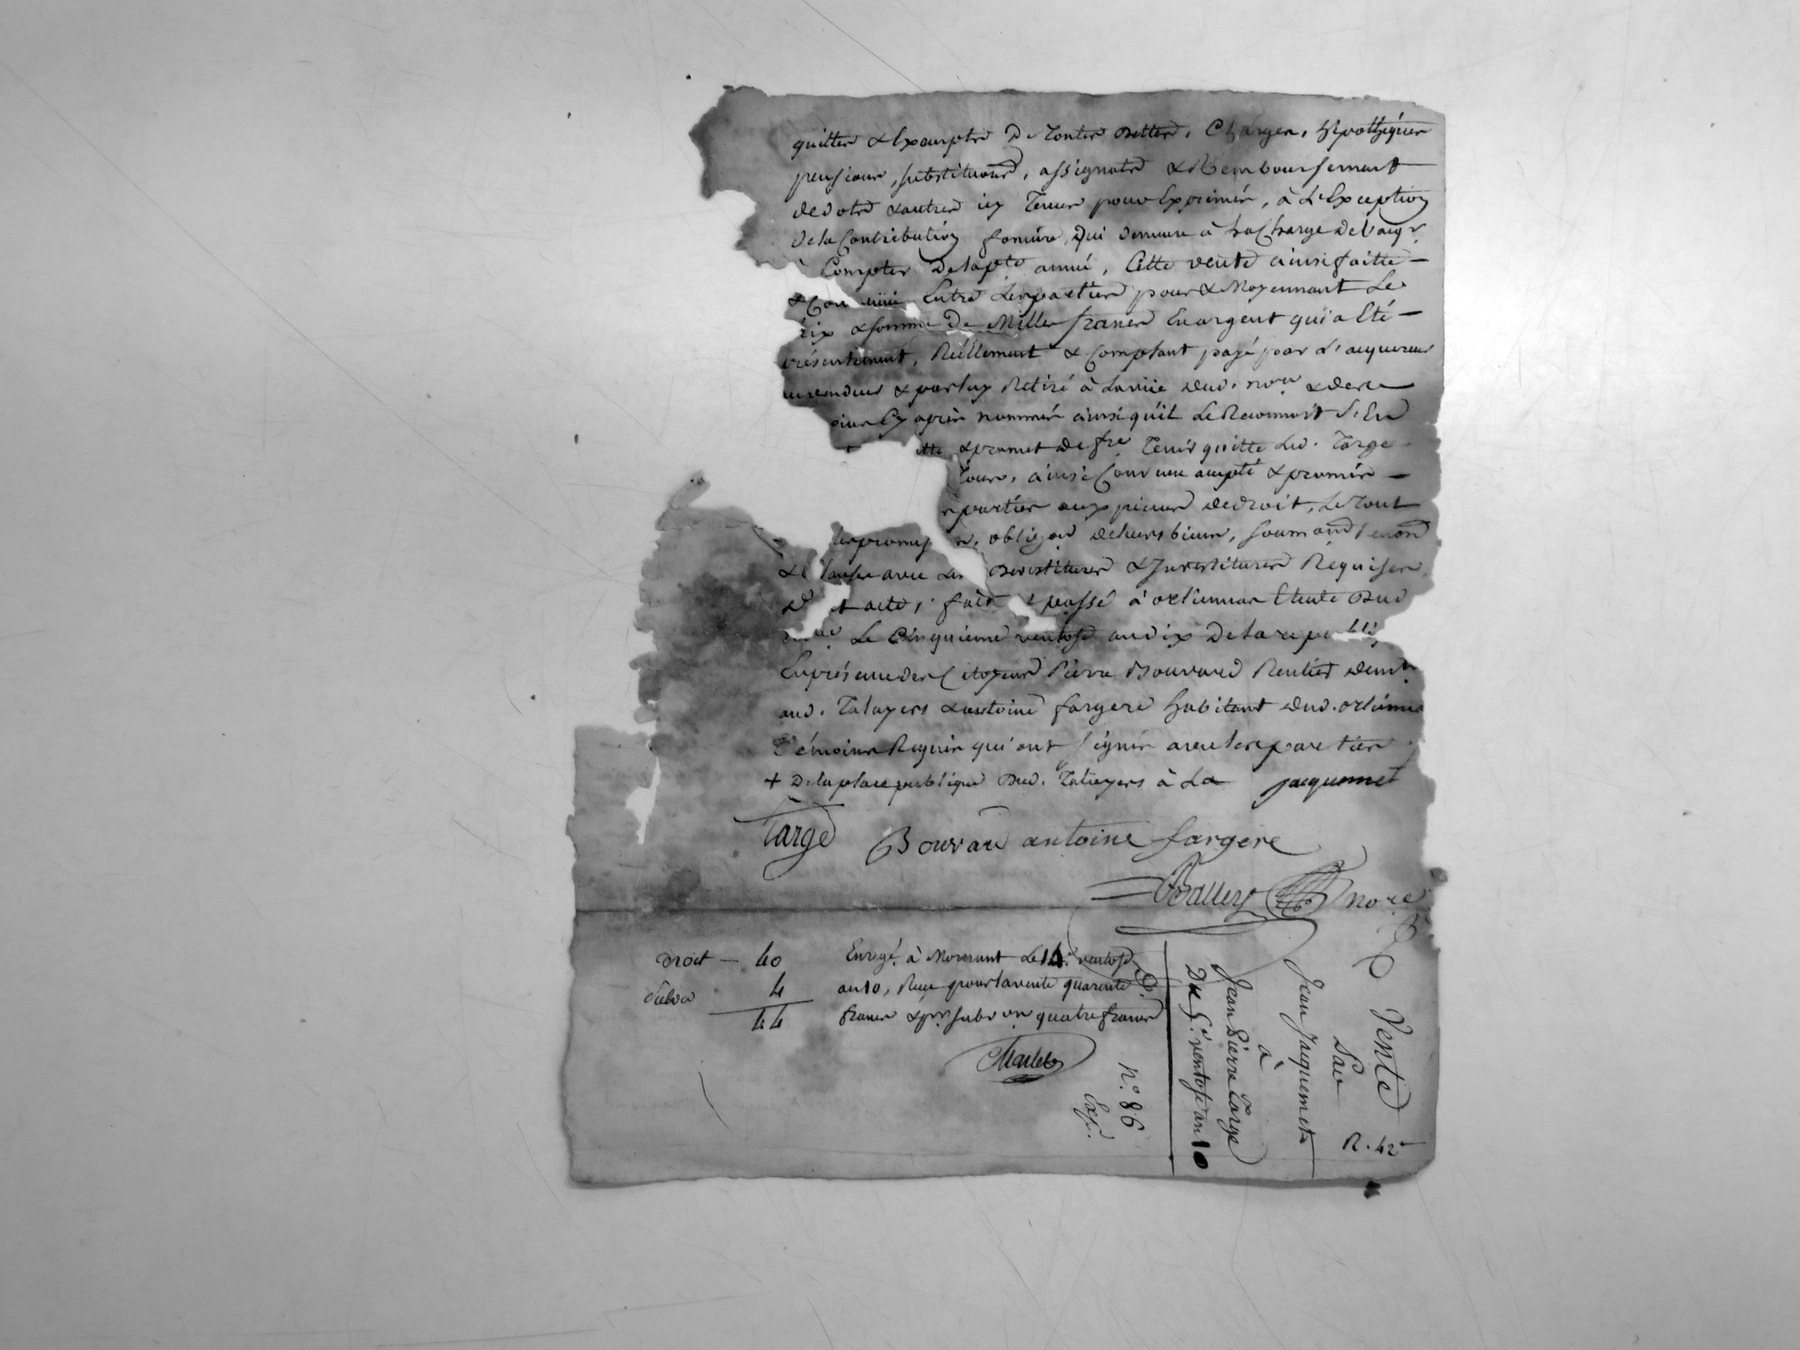 quitte & Exempte De Toutes dettes, Charges, hypotheques
pensions, substitutions, assignats & Remboursement
de dots & autres icy Tenus pour Exprimés, à L'Exception
de la Contribution fonciere, Qui demeure à la Charge de l'acqr.
à Compter de la pte année, Cette vente ainsi faitte
& Con enüe Entre Les parties pour & Moyennant Le
rix & somme De Mille francs En argent qui a Eté
présentement, Réellement & Comptant payé par L'acquereur
au vendeur & par luy Retiré à La vüe dud. nore & des
oins Cy après nommés ainsi qu'il Le Reconnoit S'En
tte & promet de fre Tenir quitte Led. Targe
ainsi Convenu accepté & promis
parties aux peines de droit, Le Tout
promes s, obligon de leurs biens, soumons renons
& Clauses avec Les Devestitures & Investitures Requises
D t acte, fait & passé à orlienas Etude Dud
nore Le Cinquieme ventose an dix De la repu lliq
En présence des Citoyens Pierre Bouvard Rentier demt.
aud. Taluyers & antoine fargere habitant dud. orlienas
Témoins Requis qui ont signés avec les parties
+ De la place publique Dud. Taluyers à La jacquemet
Targe Bouvard antoine fargere
nore
Droit — 40 Enregé. à Mornant Le 14e. ventose
Subon 4 an 10, Reçu pour la vente quarante
44 francs & pr. subvon quatre francs
N.° 86
Exp.
Du 5e. ventose an 10
Jean Pierre Targe
à
Jean Jacquemet
Par
Vente
R. 42